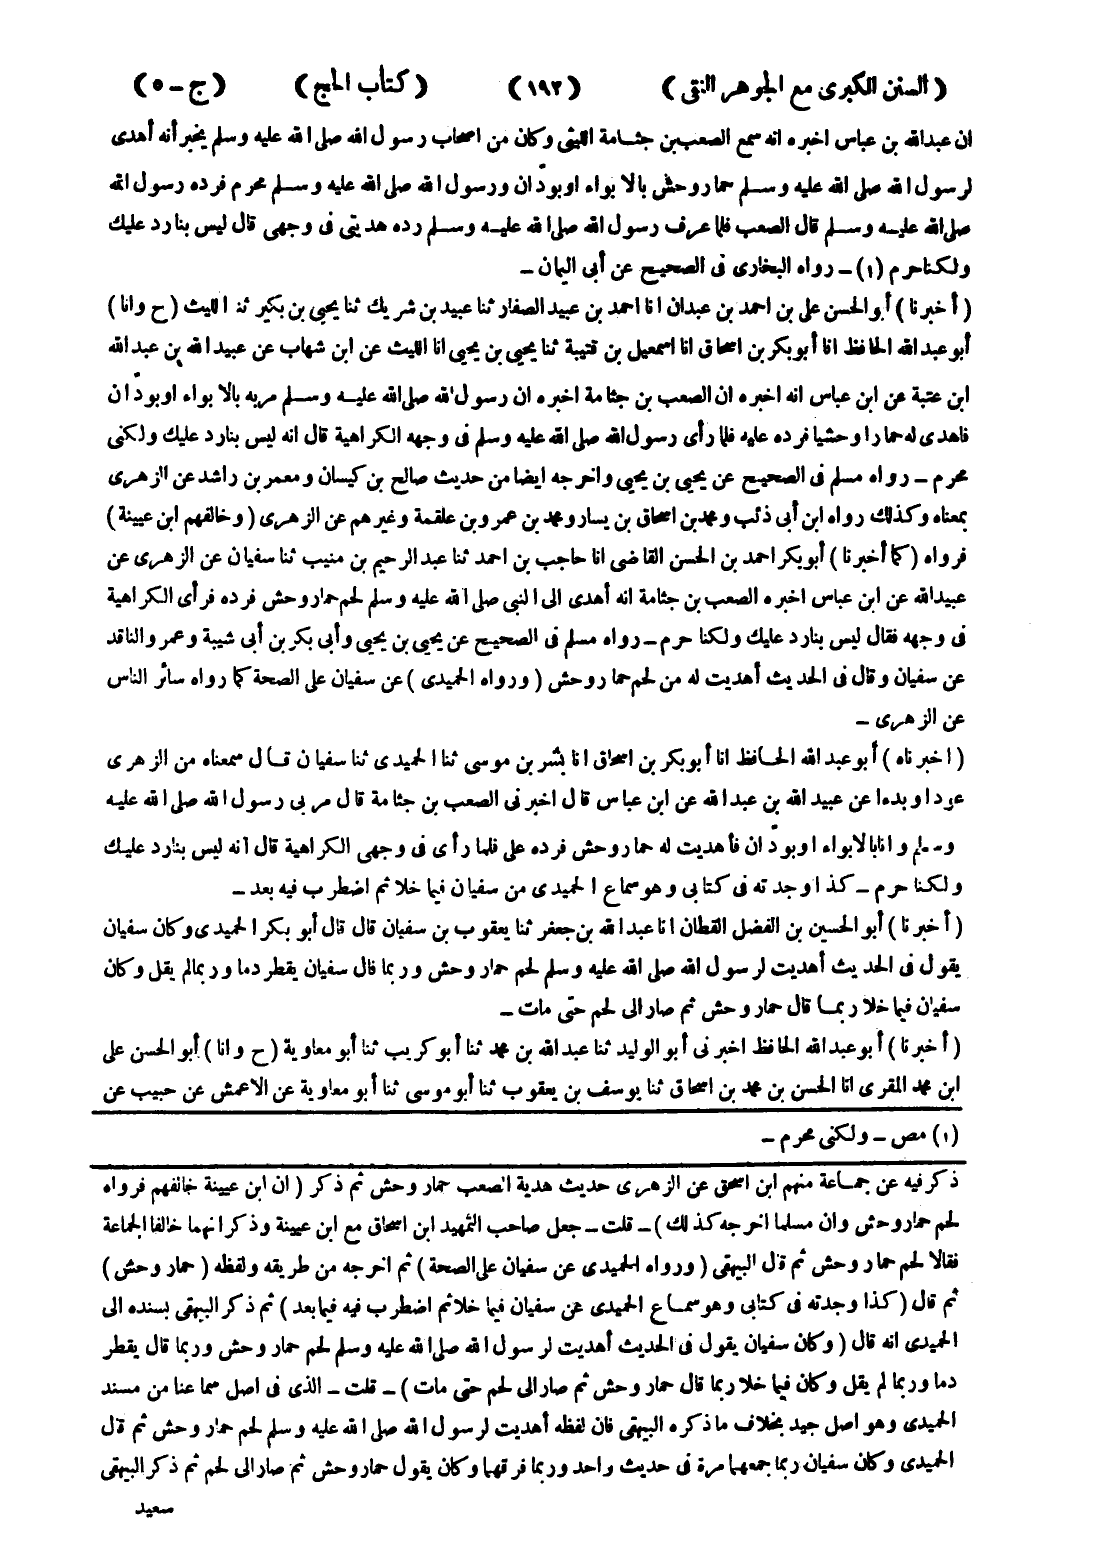 (السنن الكبرى مع الجوهر النقى) (١٩٢) (كتاب الحج) (ج - ٥)
ان عبدالله بن عباس اخبره انه سمع الصعب بن جثامة الليثى وكان من اصحاب رسول الله صلى الله عليه وسلم يخبر أنه أهدى
لرسول الله صلى الله عليه وسلم حمار وحش بالا بواء اوبودّان ورسول الله صلى الله عليه وسلم محرم فرده رسول الله
صلى الله عليه وسلم قال الصعب فلما عرف رسول الله صلى الله عليه وسلم رده هديتى فى وجهى قال ليس بنا رد عليك
ولكنا حرم (١) - رواه البخارى فى الصحيح عن أبى اليمان -
(أخبرنا) أبوالحسن على بن احمد بن عبدان انا احمد بن عبيد الصفار ثنا عبيد بن شريك ثنا يحيى بن بكير ثنا الليث (ح وانا)
أبوعبدالله الحافظ انا أبوبكر بن اسحاق انا اسمعيل بن قتيبة ثنا يحيى بن يحيى انا الليث عن ابن شهاب عن عبيدالله بن عبدالله
ابن عتبة عن ابن عباس انه اخبره ان الصعب بن جثامة اخبره ان رسول الله صلى الله عليه وسلم مر به بالا بواء اوبودّان
فاهدى له حمارا وحشيا فرده عليه فلما رأى رسول الله صلى الله عليه وسلم فى وجهه الكراهية قال انه ليس بنا رد عليك ولكنى
محرم - رواه مسلم فى الصحيح عن يحيى بن يحيى واخرجه ايضا من حديث صالح بن كيسان ومعمر بن راشد عن الزهرى
بمعناه وكذلك رواه ابن أبى ذئب ومحمد بن اسحاق بن يسار ومحمد بن عمرو بن علقمة وغيرهم عن الزهرى (وخالفهم ابن عيينة)
فرواه (كما أخبرنا) أبوبكر احمد بن الحسن القاضى انا حاجب بن احمد ثنا عبدالرحيم بن منيب ثنا سفيان عن الزهرى عن
عبيدالله عن ابن عباس اخبره الصعب بن جثامة انه أهدى الى النبى صلى الله عليه وسلم لحم حمار وحش فرده فرأى الكراهية
فى وجهه فقال ليس بنا رد عليك ولكنا حرم - رواه مسلم فى الصحيح عن يحيى بن يحيى وأبى بكر بن أبى شيبة وعمرو الناقد
عن سفيان وقال فى الحديث أهديت له من لحم حمار وحش (ورواه الحميدى) عن سفيان على الصحة كما رواه سائر الناس
عن الزهرى -
(اخبرناه) أبوعبدالله الحافظ انا أبوبكر بن اسحاق انا بشر بن موسى ثنا الحميدى ثنا سفيان قال سمعناه من الزهرى
عودا وبدءا عن عبيدالله بن عبدالله عن ابن عباس قال اخبرنى الصعب بن جثامة قال مر بى رسول الله صلى الله عليه
وسلم وانا بالابواء اوبودّان فأهديت له حمار وحش فرده على فلما رأى فى وجهى الكراهية قال انه ليس بنا رد عليك
ولكنا حرم - كذا وجدته فى كتابى وهو سماع الحميدى من سفيان فيما خلا ثم اضطرب فيه بعد -
(أخبرنا) أبوالحسين بن الفضل القطان انا عبدالله بن جعفر ثنا يعقوب بن سفيان قال قال أبو بكر الحميدى وكان سفيان
يقول فى الحديث أهديت لرسول الله صلى الله عليه وسلم لحم حمار وحش وربما قال سفيان يقطر دما وربما لم يقل وكان
سفيان فيما خلا ربما قال حمار وحش ثم صار الى لحم حتى مات -
(أخبرنا) أبوعبدالله الحافظ اخبرنى أبوالوليد ثنا عبدالله بن محمد ثنا أبوكريب ثنا أبو معاوية (ح وانا) أبوالحسن على
ابن محمد المقرى انا الحسن بن محمد بن اسحاق ثنا يوسف بن يعقوب ثنا أبوموسى ثنا أبو معاوية عن الاعمش عن حبيب عن
(١) مص - ولكنى محرم -
ذكر فيه عن جماعة منهم ابن اسحق عن الزهرى حديث هدية الصعب حمار وحش ثم ذكر (ان ابن عيينة خالفهم فرواه
لحم حمار وحش وان مسلما اخرجه كذلك) - قلت - جعل صاحب التمهيد ابن اسحاق مع ابن عيينة وذكر انهما خالفا الجماعة
فقالا لحم حمار وحش ثم قال البيهقى (ورواه الحميدى عن سفيان على الصحة) ثم اخرجه من طريقه ولفظه (حمار وحش)
ثم قال (كذا وجدته فى كتابى وهو سماع الحميدى عن سفيان فيما خلا ثم اضطرب فيه فيما بعد) ثم ذكر البيهقى بسنده الى
الحميدى انه قال (وكان سفيان يقول فى الحديث أهديت لرسول الله صلى الله عليه وسلم لحم حمار وحش وربما قال يقطر
دما وربما لم يقل وكان فيما خلا ربما قال حمار وحش ثم صار الى لحم حتى مات) - قلت - الذى فى اصل سماعنا من مسند
الحميدى وهو اصل جيد بخلاف ما ذكره البيهقى فان لفظه أهديت لرسول الله صلى الله عليه وسلم لحم حمار وحش ثم قال
الحميدى وكان سفيان ربما جمعهما مرة فى حديث واحد وربما فرقهما وكان يقول حمار وحش ثم صار الى لحم ثم ذكر البيهقى
سعيد